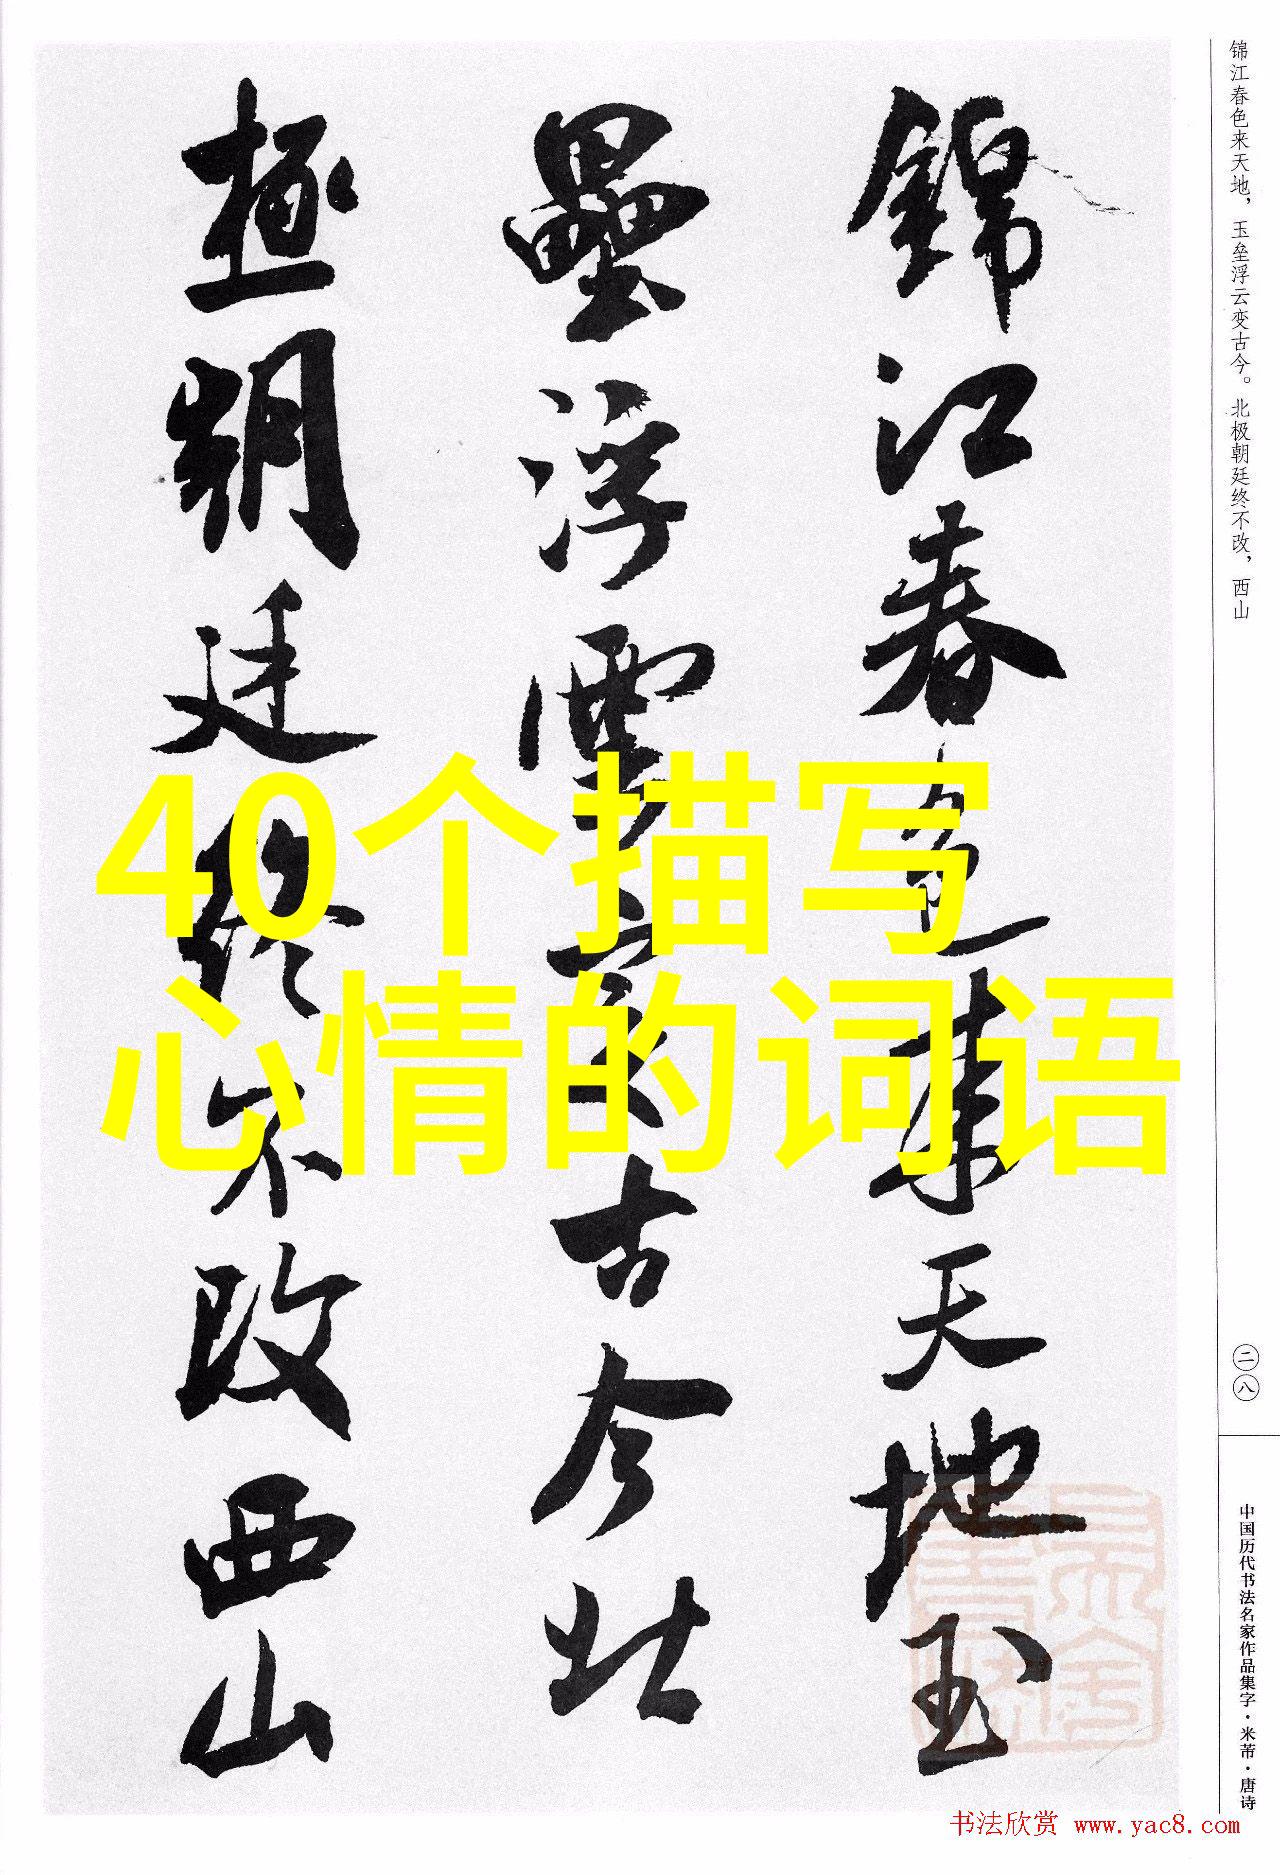 錦江春色来天地玉
壘浮雲变古今北
極朝廷终不改西山
40个描写
心情的词语
锦江春色来天地，玉垒浮云变古今。北极朝廷终不改，西山
二八
中国历代书法名家作品集字·米芾·唐诗
书法欣赏 www.yac8.com